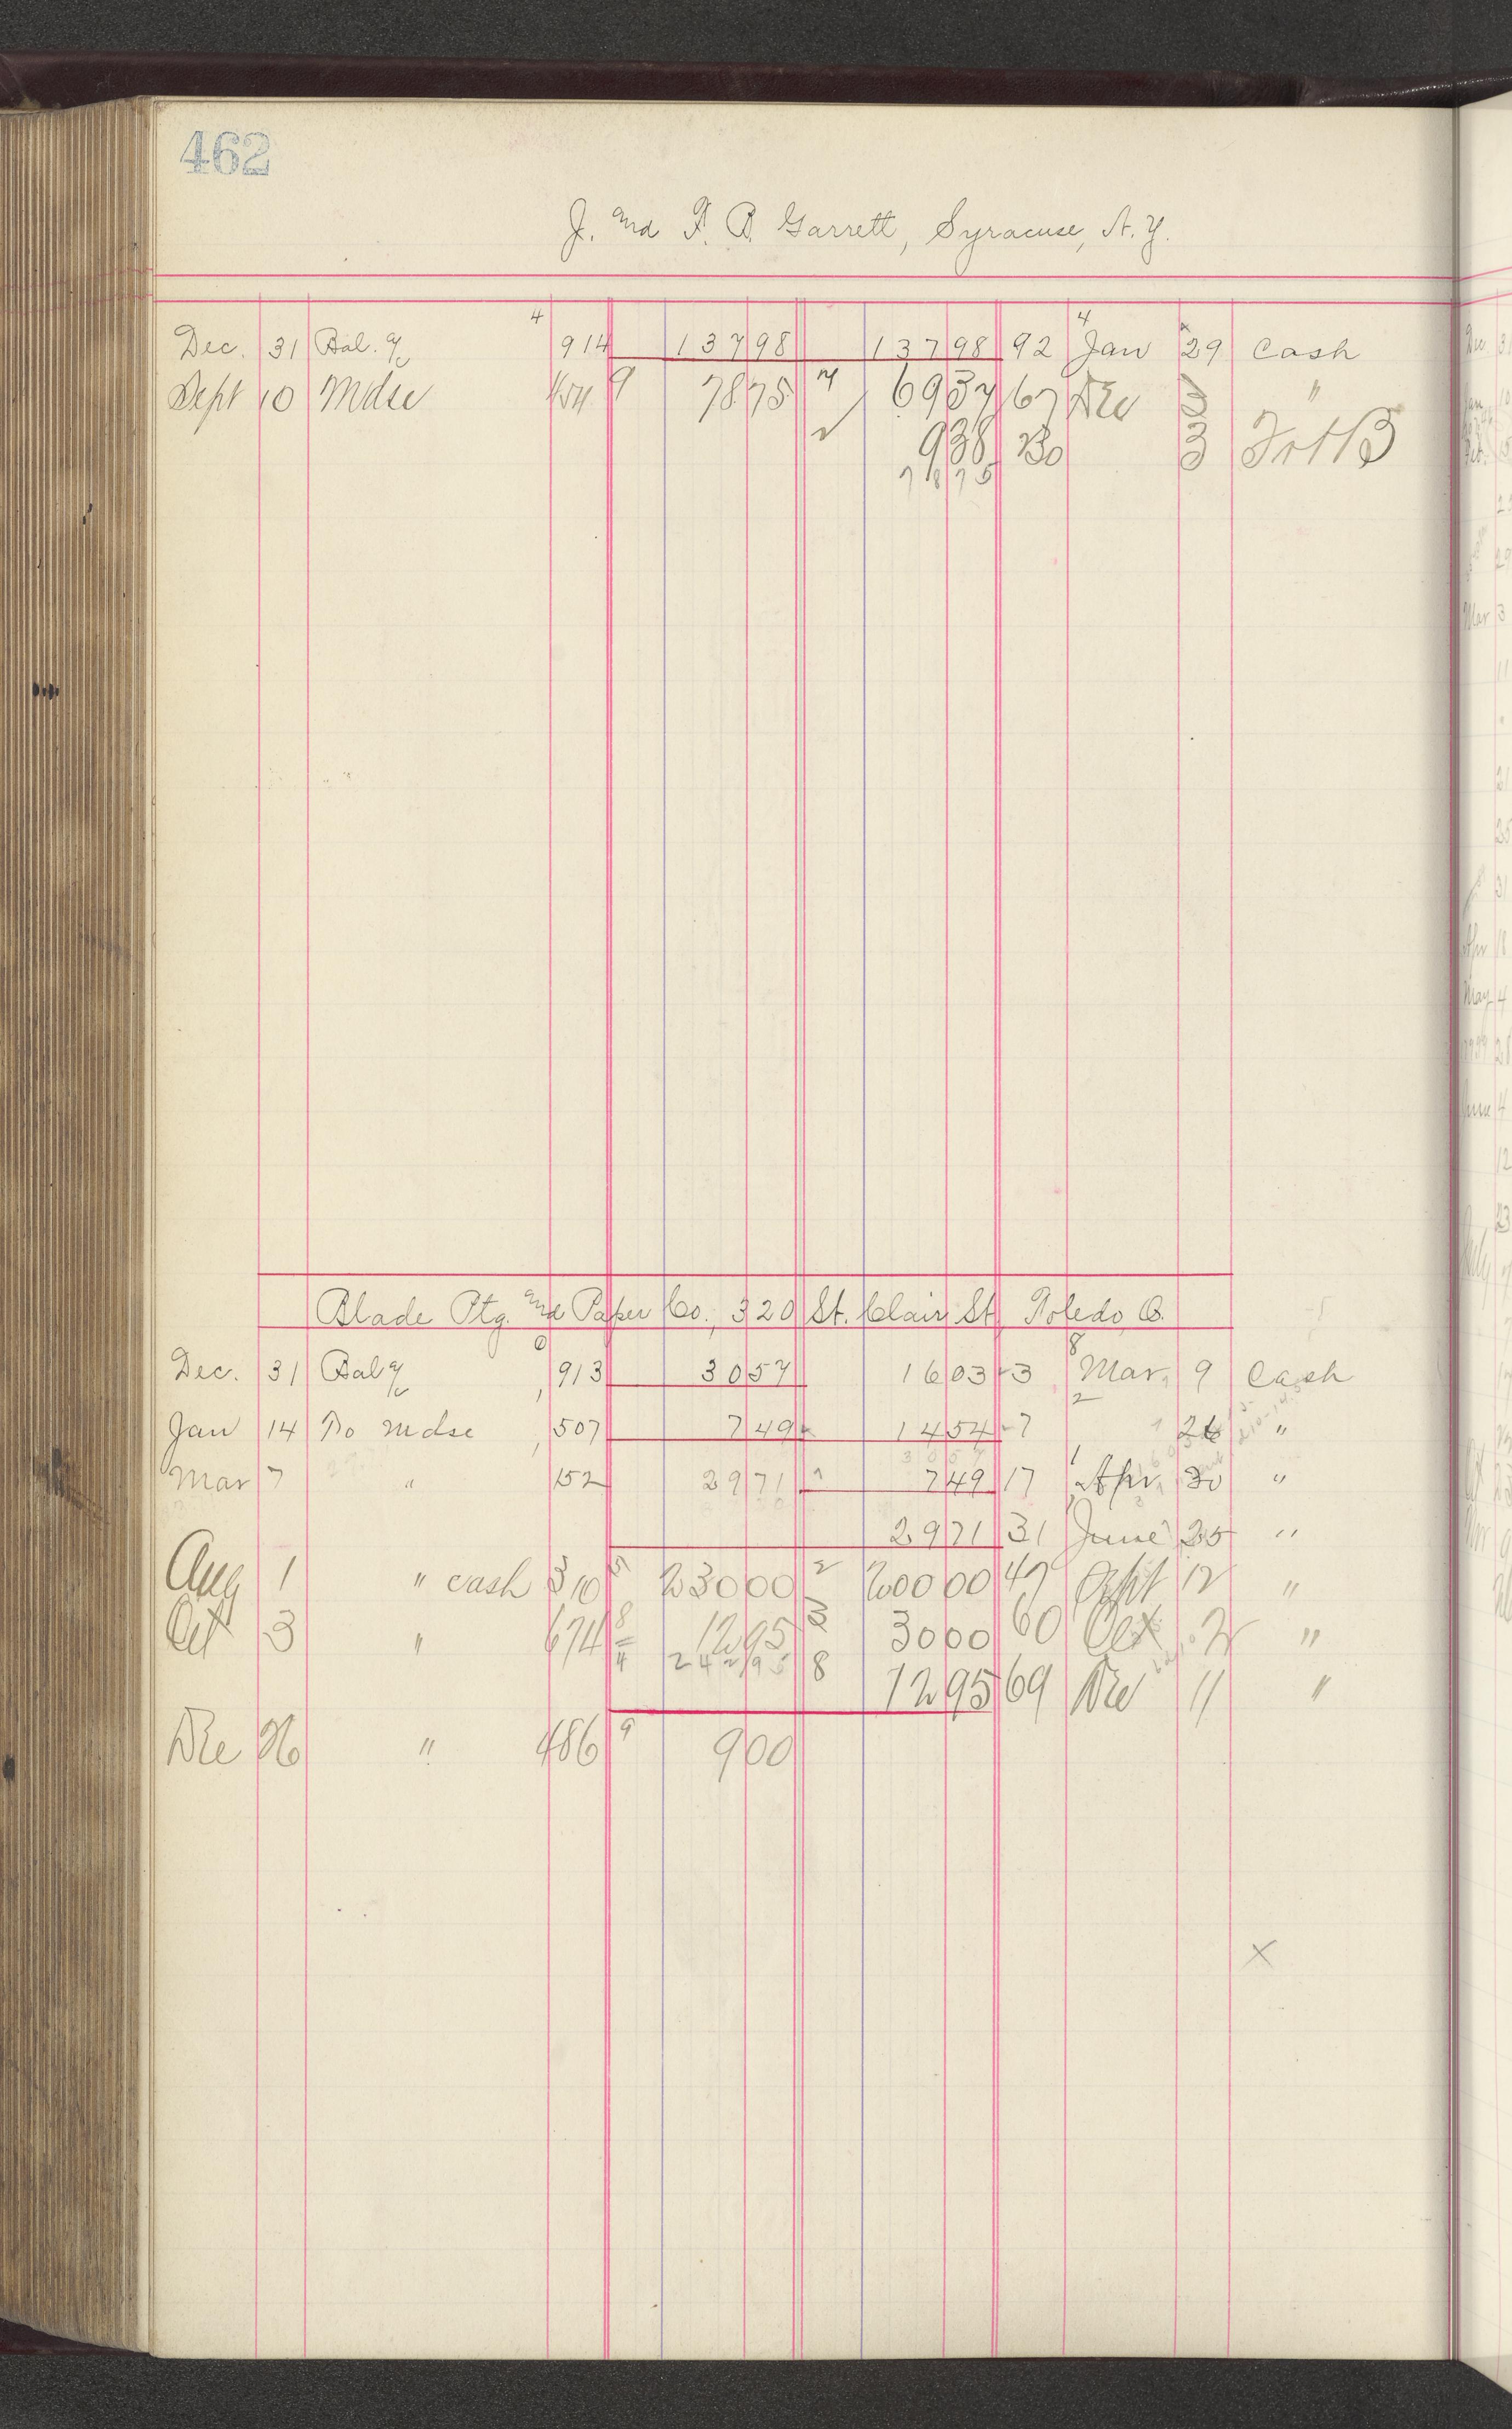 462
J. and F. B. Garrett, Syracuse, N. Y.
4 4
Dec. 31 Bal. a/c 914 137 98 137 98 92 Jan 29 Cash
Sept 10 Mdse 9 78 75 4 69 37 67 Dec 3 "
✓ 9 38 B0 3 F + B
78 75
Blade Ptg. and Paper Co., 320 St. Clair St. Toledo O.
Dec. 31 Bal a/c 913 30 57 16 03 3 Mar. 9 Cash
Jan 14 To Mdse 507 7 49 14 54 7 26 "
30 57
Mar 7 " 152 29 71 7 49 17 Apr. 30 "
29 71 31 June 25 "
Aug 1 " cash 310 5 230 00 2 200 00 47 Sept 12 "
Oct 3 " 674 8 12 95 3 30 00 60 Oct 2 "
4 242 95 8 12 95 69 Dec 11 "
Dec 26 " 486 9 9 00
X